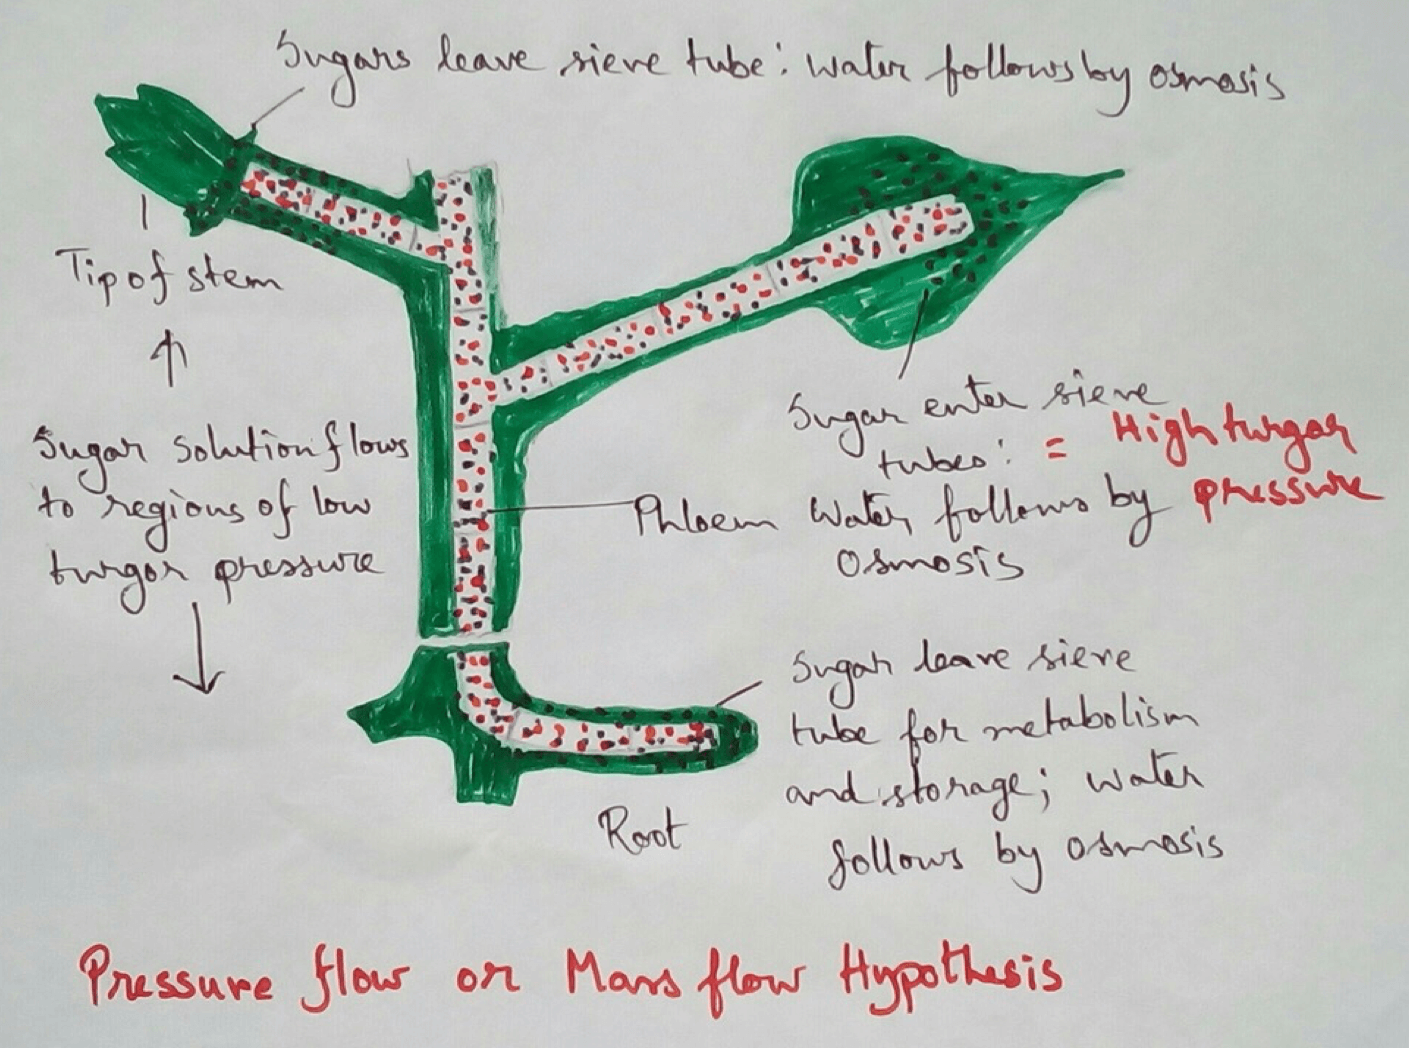 Sugars leave sieve tube: Water follows by osmosis
Tip of stem
Sugar solution flows
to regions of low
turgor pressure
Sugar enter sieve
tubes: = High turgor
Phloem
Water follows by pressure
Osmosis
Sugar leave sieve
tube for metabolism
and storage; water
follows by osmosis
Root
Pressure flow or Mass flow Hypothesis